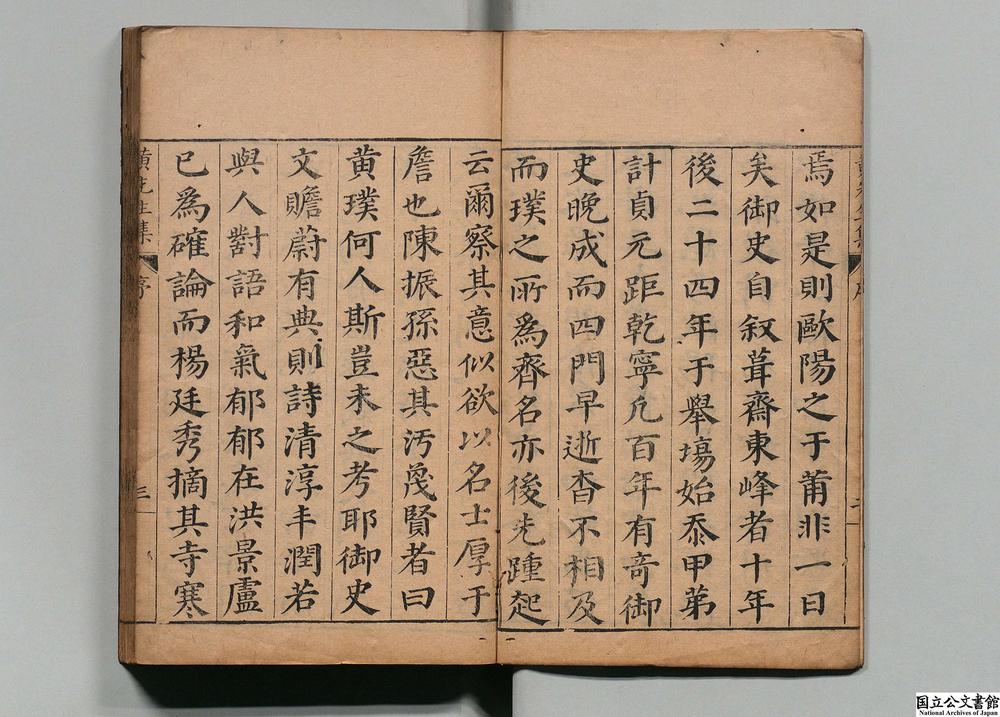 焉如是則歐陽之于莆非一日
矣御史自叙葺齋東峰者十年
後二十四年于舉塲始忝甲第
計貞元距乾寧凢百年有奇御
史晚成而四門早逝杳不相及
而璞之所為齊名亦後先踵起
云爾察其意似欲以名士厚于
詹也陳振孫惡其汚衊賢者曰
黄璞何人斯豈未之考耶御史
文贍蔚有典則詩清淳丰潤若
與人對語和氣郁郁在洪景盧
已為確論而楊廷秀摘其寺寒
黄先生集
序
三
二
国立公文書館
National Archives of Japan